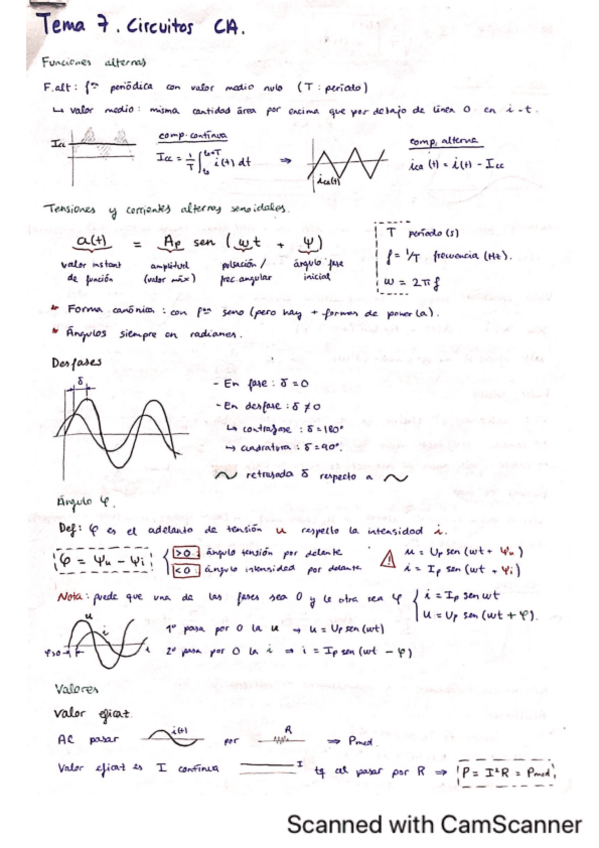 Tema 7. Circuitos CA.
Funciones alternas
F.alt: fᵒⁿ periódica con valor medio nulo (T: periodo)
↳ valor medio: misma cantidad área por encima que por debajo de línea 0 en i-t.
Icc
comp. continua
Icc = 1/T ∫ₜ₀ᵗ⁰⁺ᵀ i(t) dt ⇒
ica(t)
comp. alterna
ica (t) = i(t) - Icc
Tensiones y corrientes alternas senoidales.
a(t) = Ap sen (ωt + Ψ)
valor instant de función
amplitud (valor máx)
pulsación / frec. angular
ángulo fase inicial
T periodo (s)
f = 1/T frecuencia (Hz).
ω = 2πf
Forma canónica: con fᵒⁿ seno (pero hay + formas de ponerla).
Ángulos siempre en radianes.
Desfases
δ
- En fase: δ = 0
- En desfase: δ ≠ 0
↳ contrafase: δ = 180°
→ cuadratura: δ = 90°.
retrasada δ respecto a
Ángulo φ.
Def: φ es el adelanto de tensión u respecto la intensidad i.
φ = Ψu - Ψi
> 0: ángulo tensión por delante
< 0: ángulo intensidad por delante
u = Up sen (ωt + Ψu)
i = Ip sen (ωt + Ψi)
Nota: puede que una de las fases sea 0 y la otra sea φ
i = Ip sen ωt
u = Up sen (ωt + φ).
u
i
φ>0
1º pasa por 0 la u → u = Up sen (ωt)
2º pasa por 0 la i ⇒ i = Ip sen (ωt - φ)
Valores
Valor eficat.
AC pasar i(t) por R ⇒ Pmed.
Valor eficat es I continua I tq al pasar por R ⇒ P = I²R = Pmed
Scanned with CamScanner